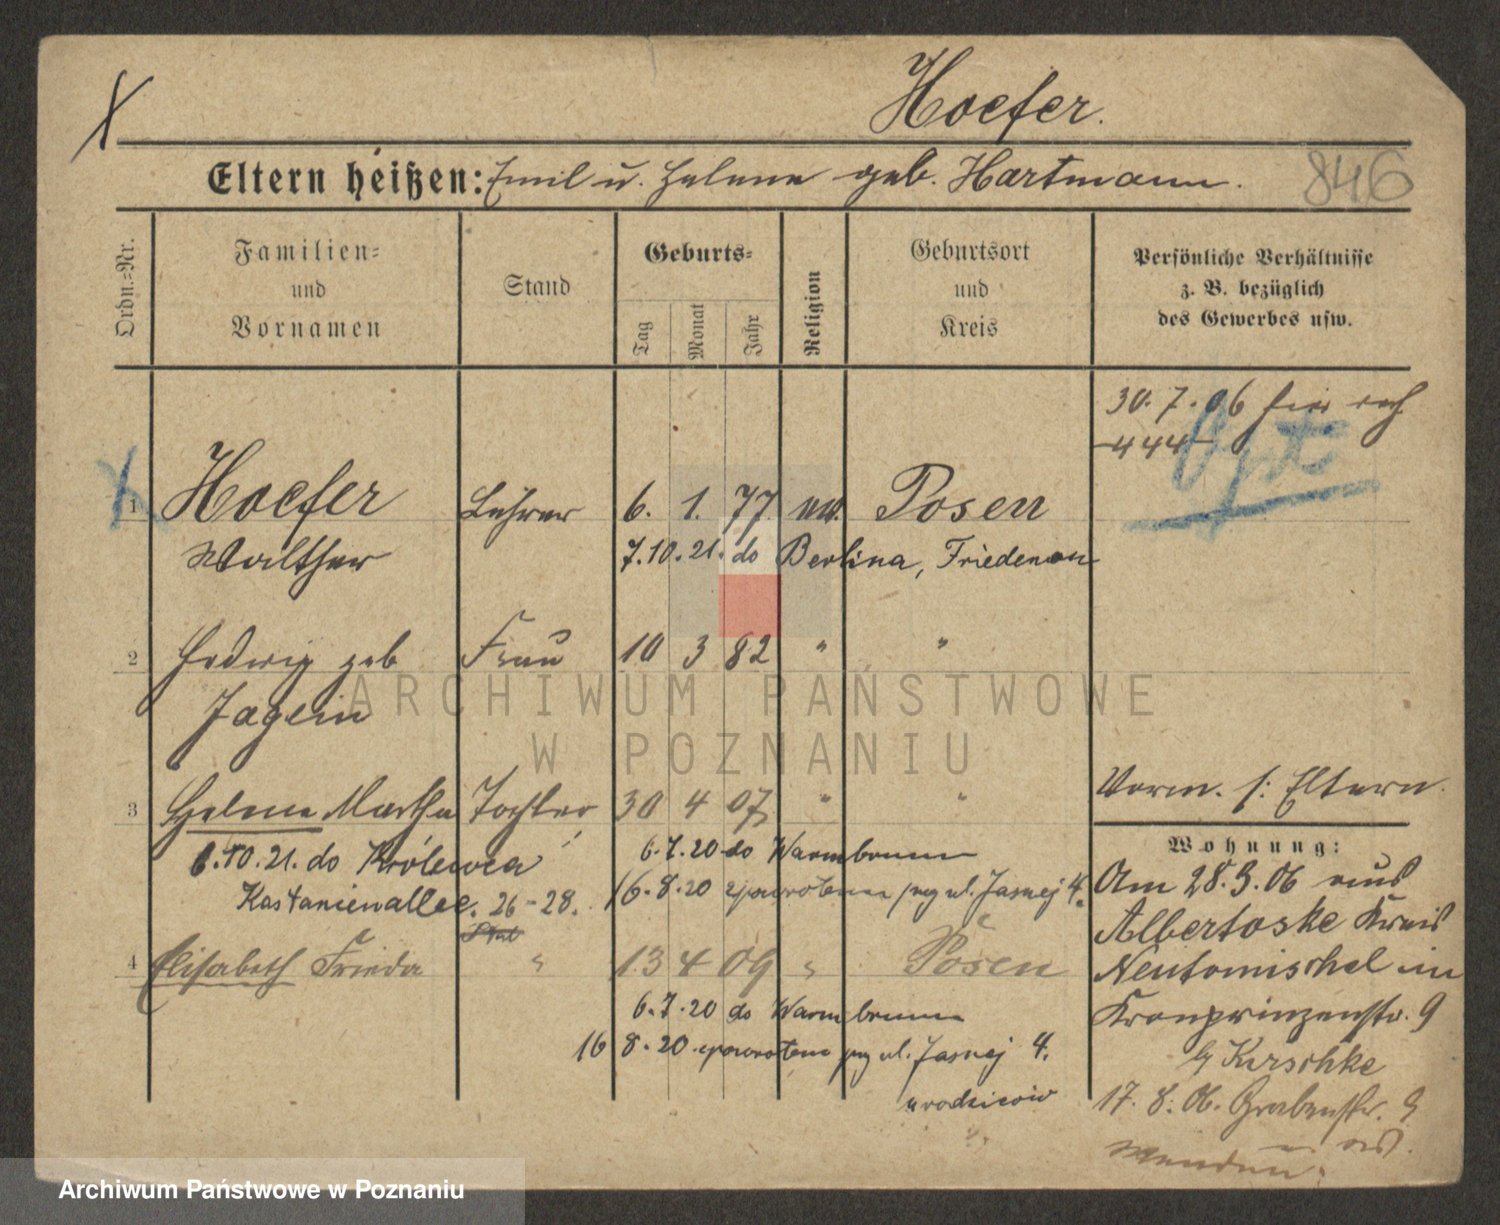 Hoefer.
Eltern heißen: Emil u. Helene geb. Hartmann.
846
Ordn.-Nr.
Familien- und Vornamen
Stand
Geburts-
Tag
Monat
Jahr
Religion
Geburtsort und Kreis
Persönliche Verhältnisse z. B. bezüglich des Gewerbes usw.
30. 7. 06
444
Opt
1 Hoefer Lehrer 6. 1. 77 ev. Posen
Walther 7.10.21. do Berlina, Friedenau
2 Hedwig geb Frau 10 3 82 " "
Jagein
3 Helene Martha Tochter 30 4 07 " "
6.10.21. do Królewca
6.7.20 do Warmbrunn
Kastanienallee. 26-28.
16.8.20 zpowrotem przy ul. Jasnej 4.
4 Elisabeth Frieda " 13 4 09 " Posen
6.7.20 do Warmbrunn
16 8.20 zpowrotem przy ul. Jasnej 4.
u rodziców
Vorm. s: Eltern.
Wohnung:
Am 28.3.06 aus
Albertoske Kreis
Neutomischel in
Kronprinzenstr. 9
b/ Kirschke
17. 8. 06. Grabenstr. 9
ARCHIWUM PAŃSTWOWE
W POZNANIU
Archiwum Państwowe w Poznaniu